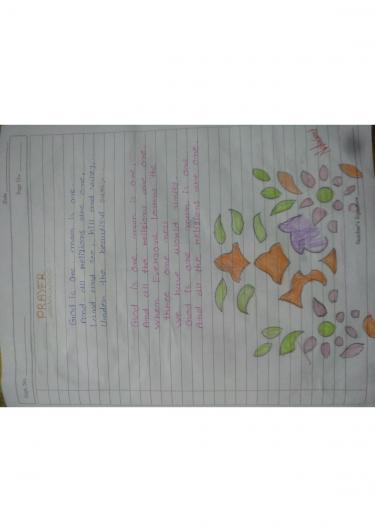 Date
Page No.
PRAYER
God is one man is one.
And all religions are one.
Land and sea, hill and valley,
Under the beautiful sky.
God is one man is one,
And all the religions are one.
When Everybody learns the
three one well
We have world unity
God is one man is one
And all the religions are one
Teacher's Signature